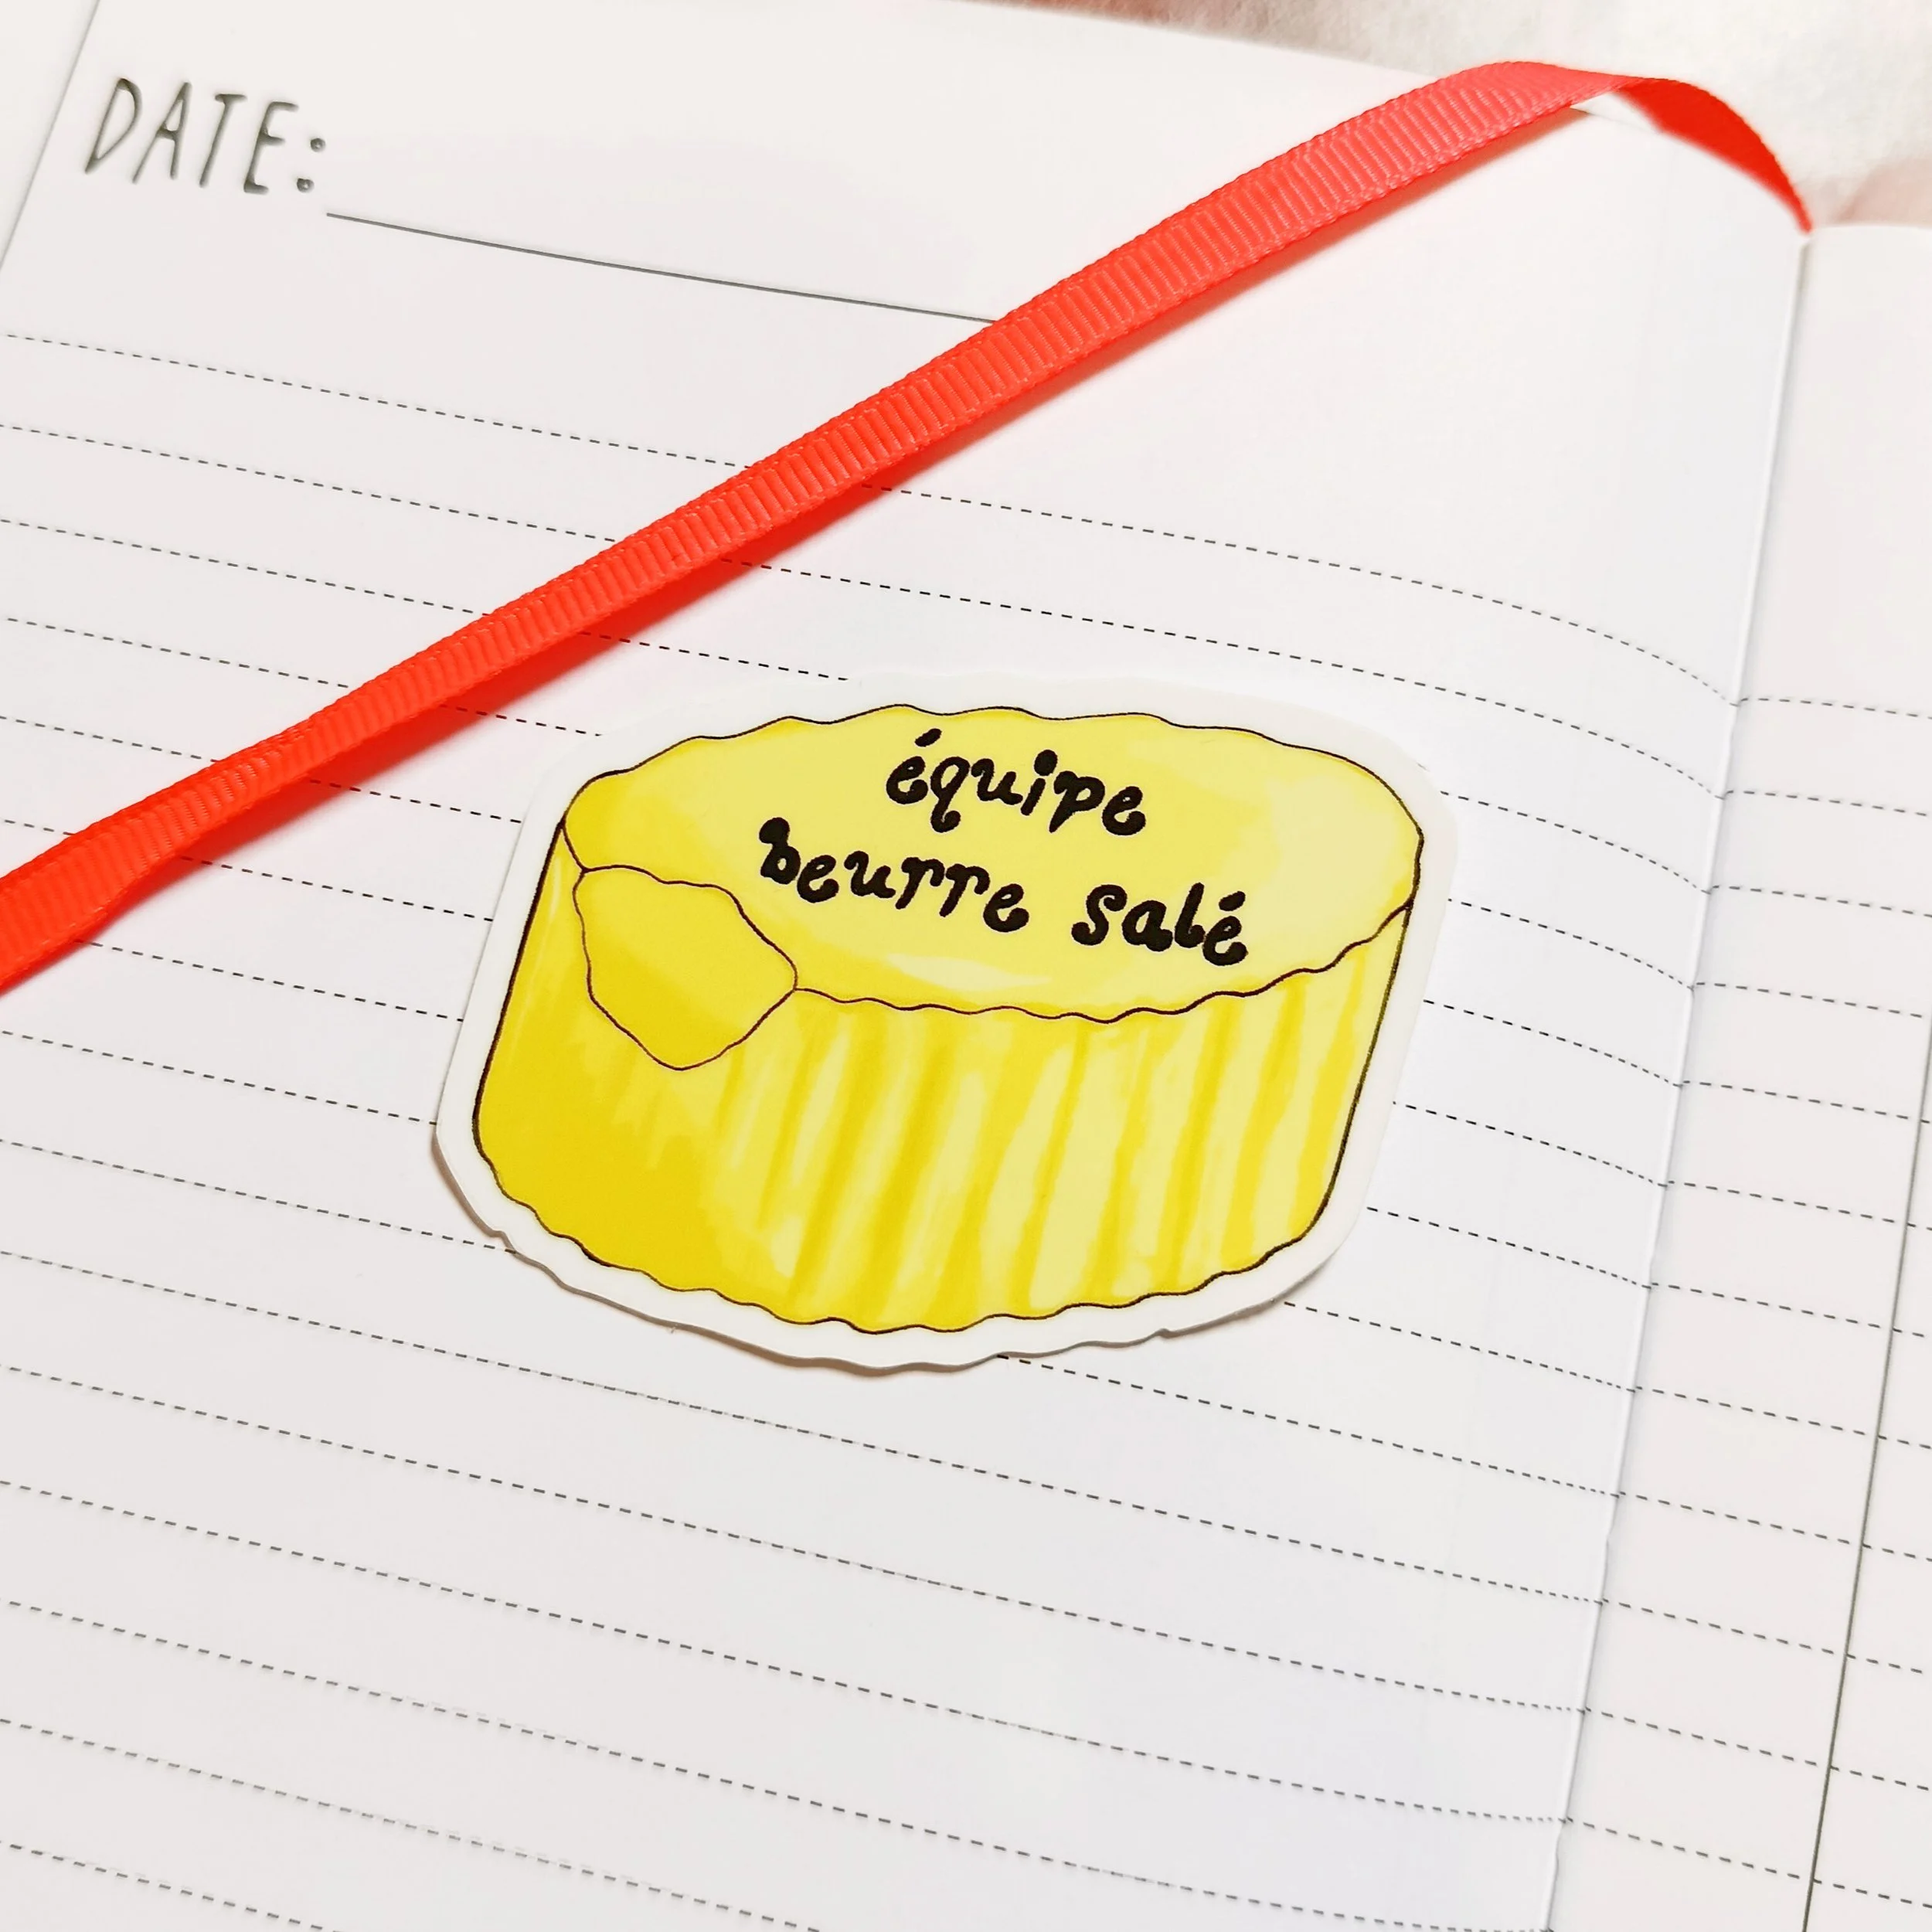 DATE:
équipe
beurre salé